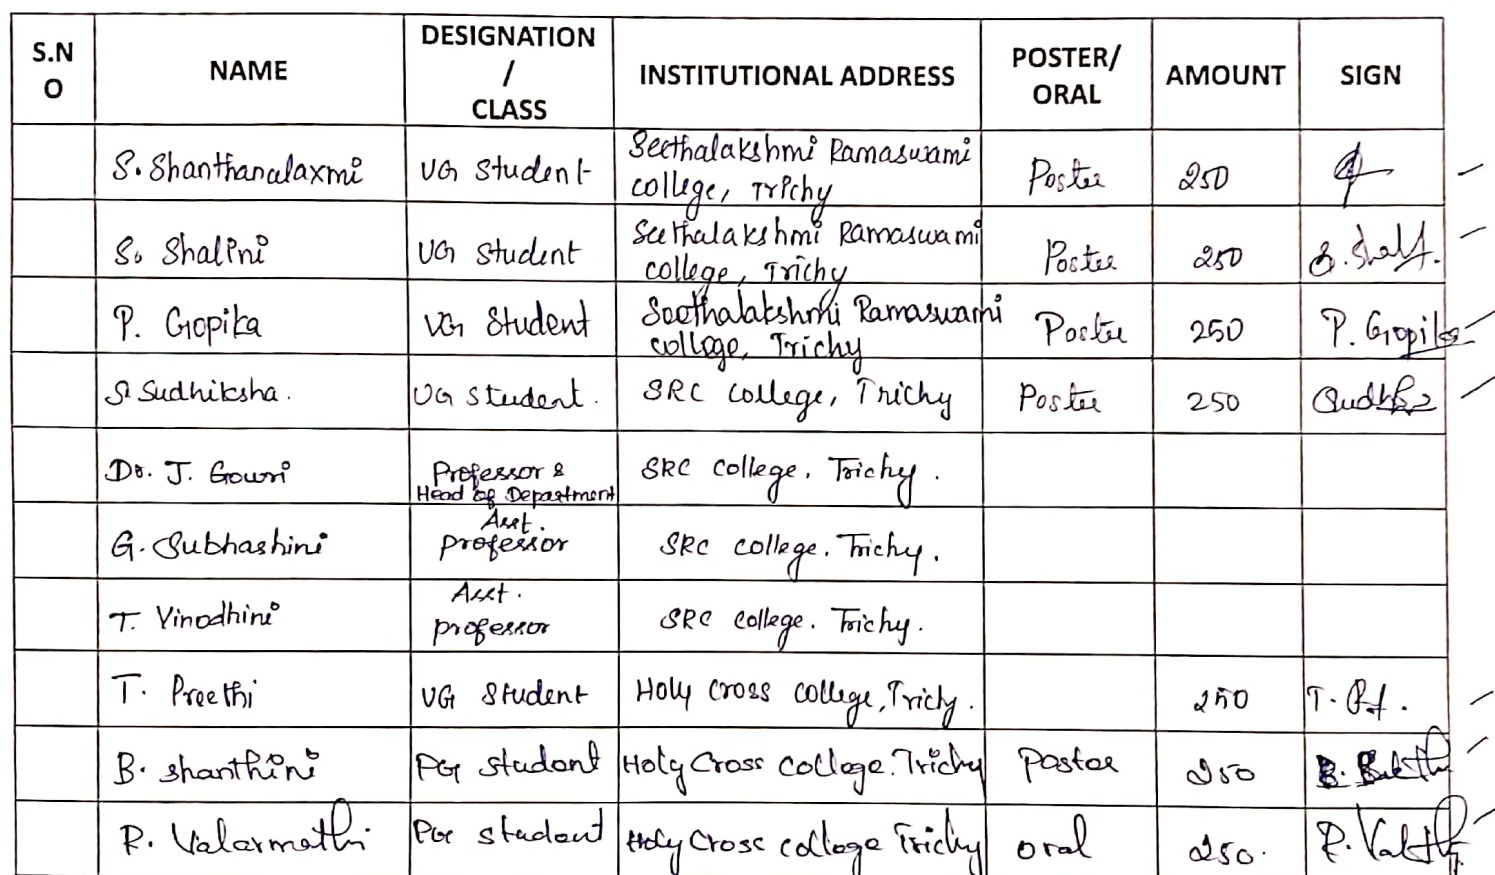 S.N
O
NAME
DESIGNATION
/
CLASS
INSTITUTIONAL ADDRESS
POSTER/
ORAL
AMOUNT
SIGN
S. Shanthanalaxmi
UG Student
Seethalakshmi Ramaswami
college, Trichy
Poster
250
S. Shalini
UG Student
Seethalakshmi Ramaswami
college, Trichy
Poster
250
P. Gopika
UG Student
Seethalakshmi Ramaswami
college, Trichy
Poster
250
P. Gopika
S. Sudhiksha.
UG Student.
SRC College, Trichy
Poster
250
Dr. J. Gowri
Professor &
Head of Department
SRC college, Trichy.
G. Subhashini
Asst.
professor
SRC college. Trichy.
T. Vinodhini
Asst.
professor
SRC college. Trichy.
T. Preethi
UG Student
Holy Cross College, Trichy.
250
B. Shanthini
PG student
Holy Cross College. Trichy
Poster
250
R. Valarmathi
PG student
Holy Cross college Trichy
oral
250.